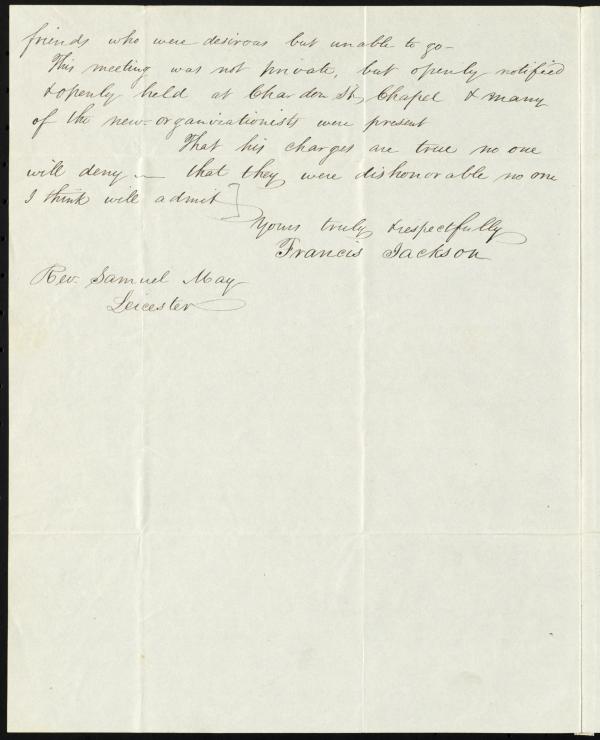 friends who were desirous but unable to go –
This meeting was not private, but openly notified
& openly held at Chardon St, Chapel & many
of the new-organizationists were present
That his charges are true no one
will deny — that they were dishonorable no one
I think will admit ]
Yours truly & respectfully
Francis Jackson
Rev. Samuel May
Leicester